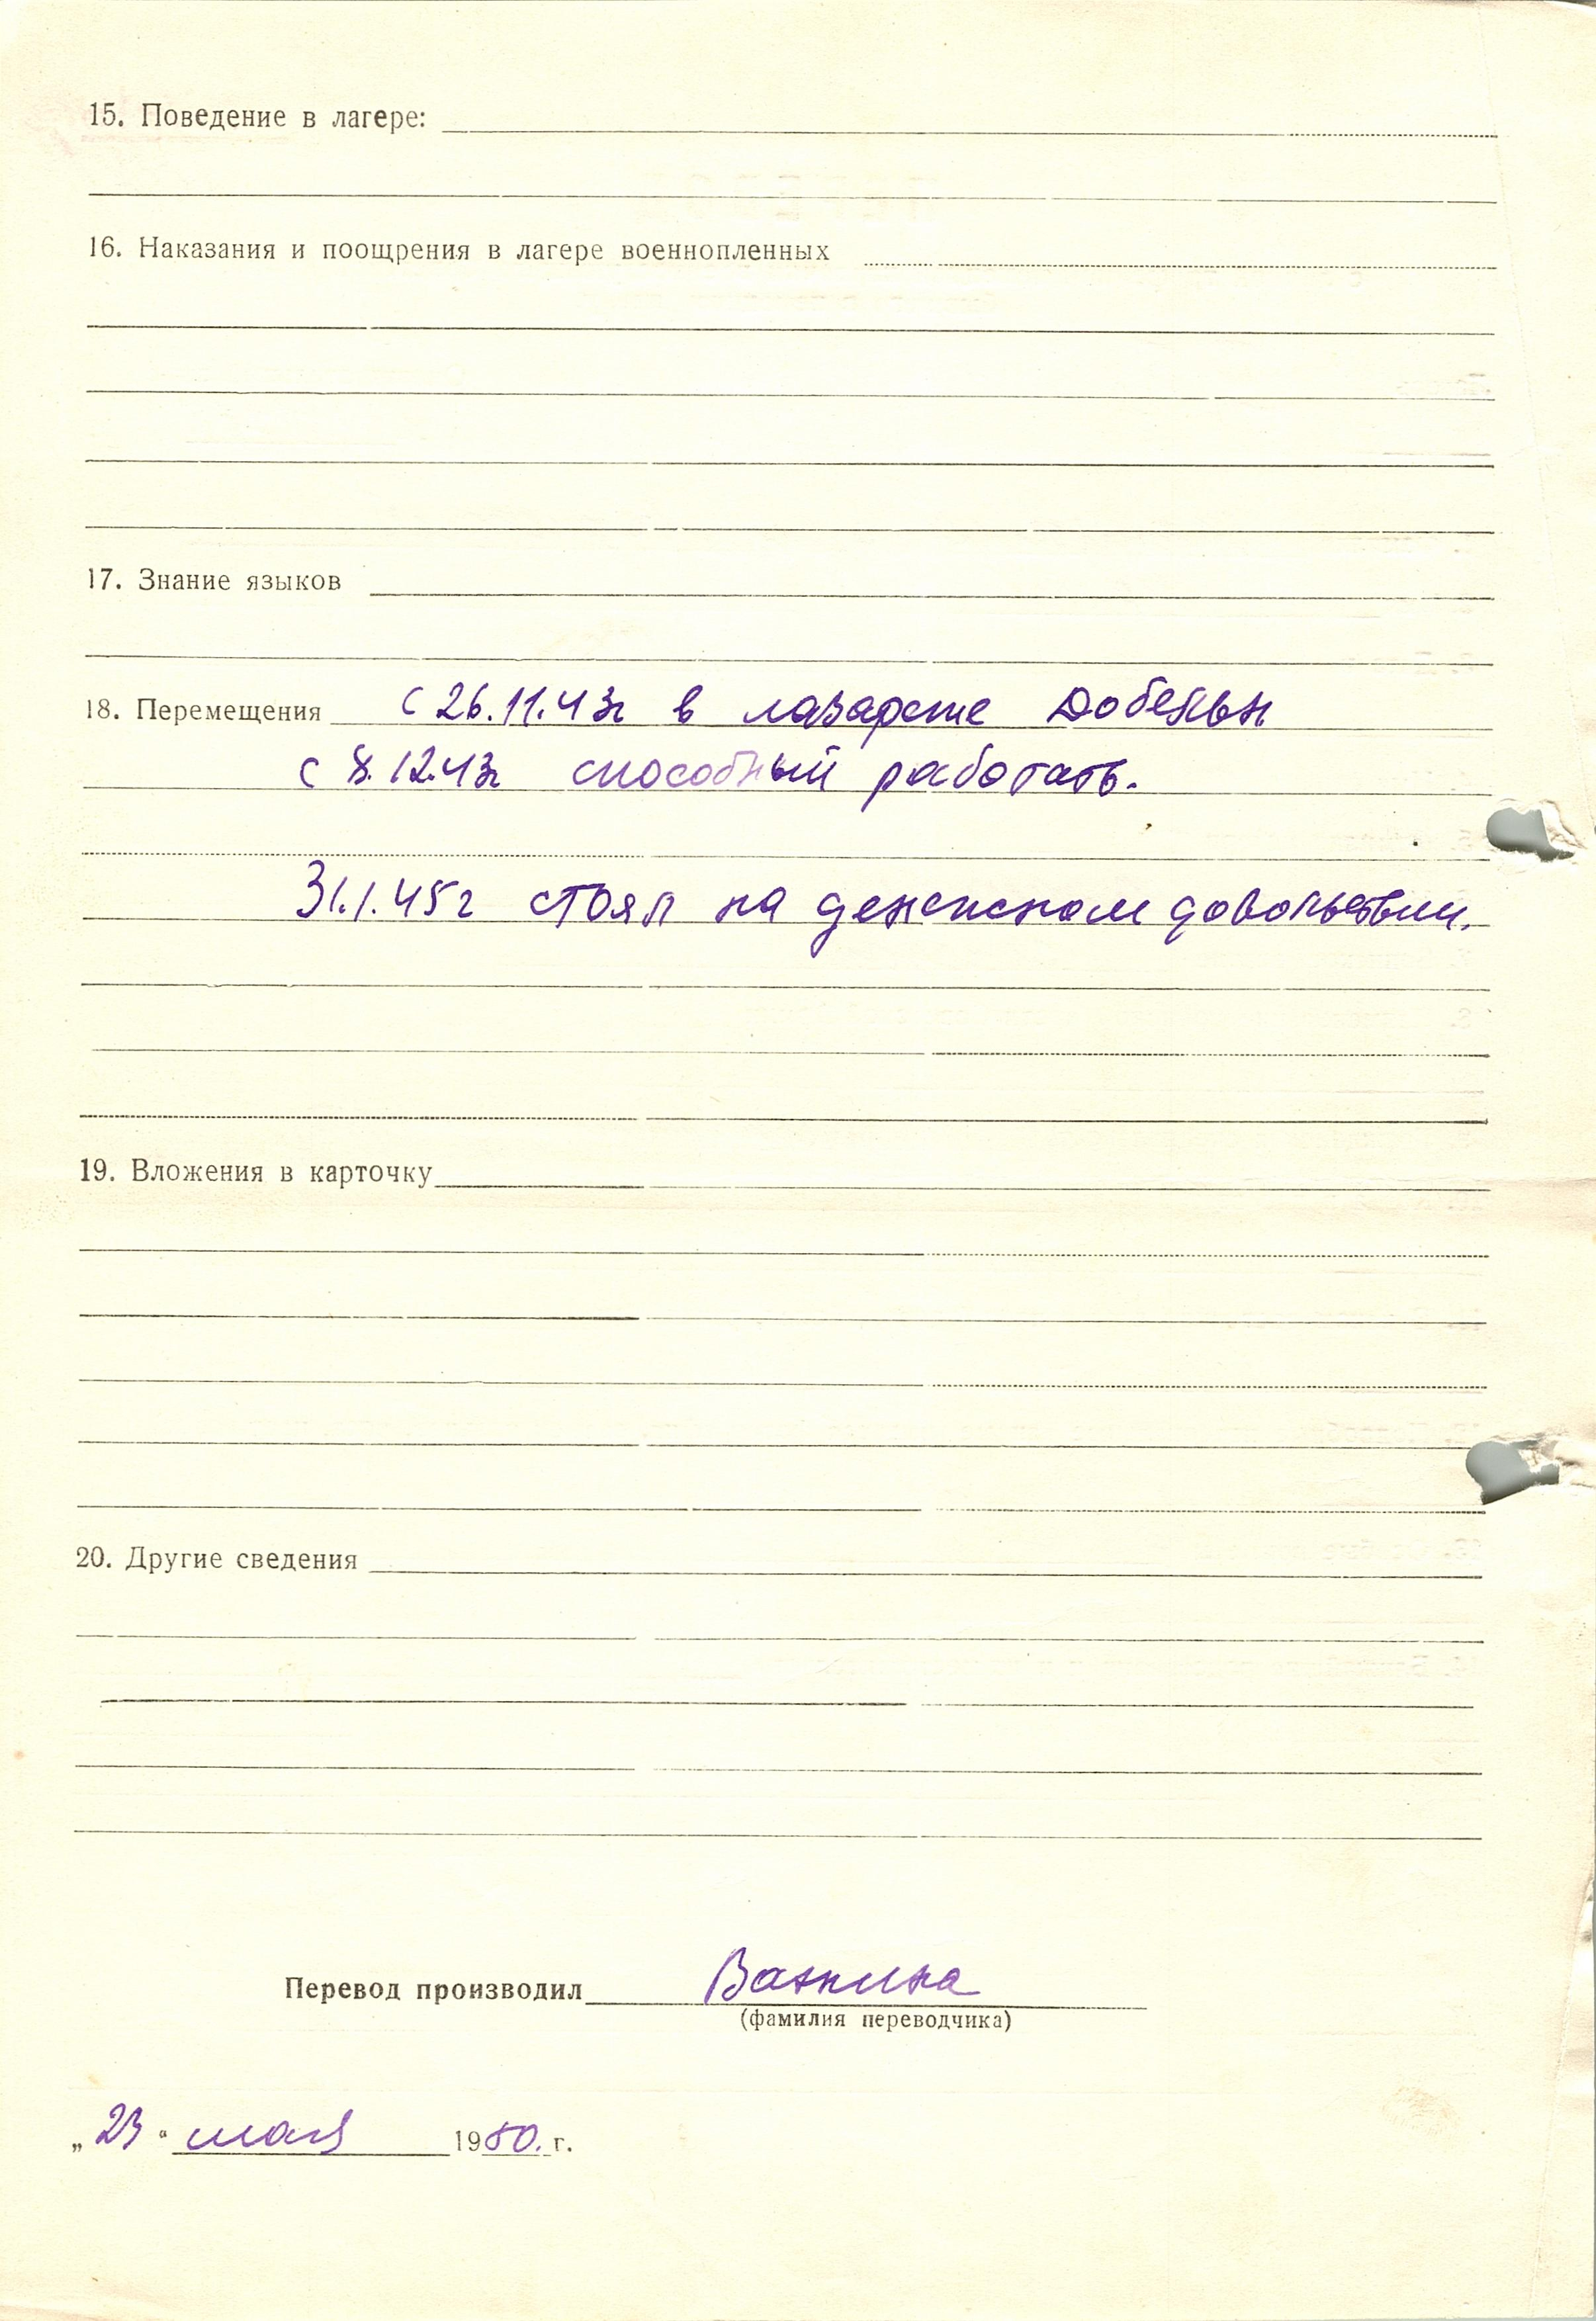 15. Поведение в лагере:
16. Наказания и поощрения в лагере военнопленных
17. Знание языков
18. Перемещения с 26.11.43г в лазарете Добельн
с 8.12.43г способный работать.
31.1.45г стоял на денежном довольствии.
19. Вложения в карточку
20. Другие сведения
Перевод производил
(фамилия переводчика)
„23“ мая 1950. г.